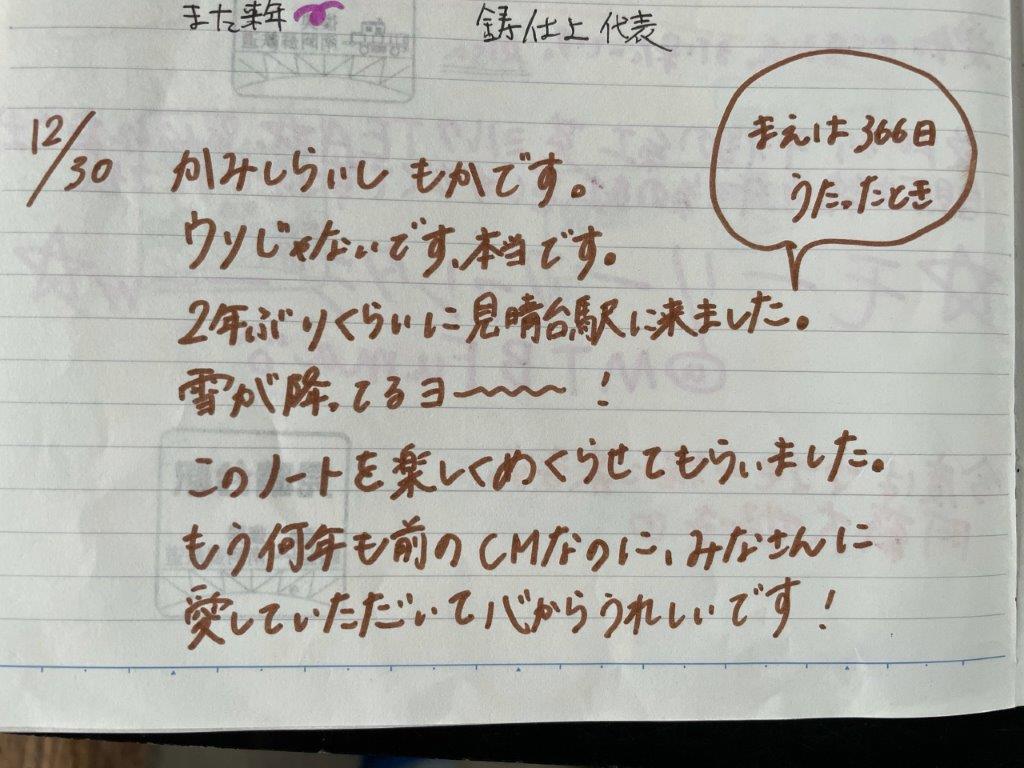 また来年
鋳仕上代表
12/30
かみしらいし もかです。
ウソじゃないです、本当です。
まえは366日
うたったとき
2年ぶりくらいに見晴台駅に来ました。
雪が降ってるヨ〜〜〜〜!
このノートを楽しくめくらせてもらいました。
もう何年も前のCMなのに、みなさんに
愛していただいて心からうれしいです!